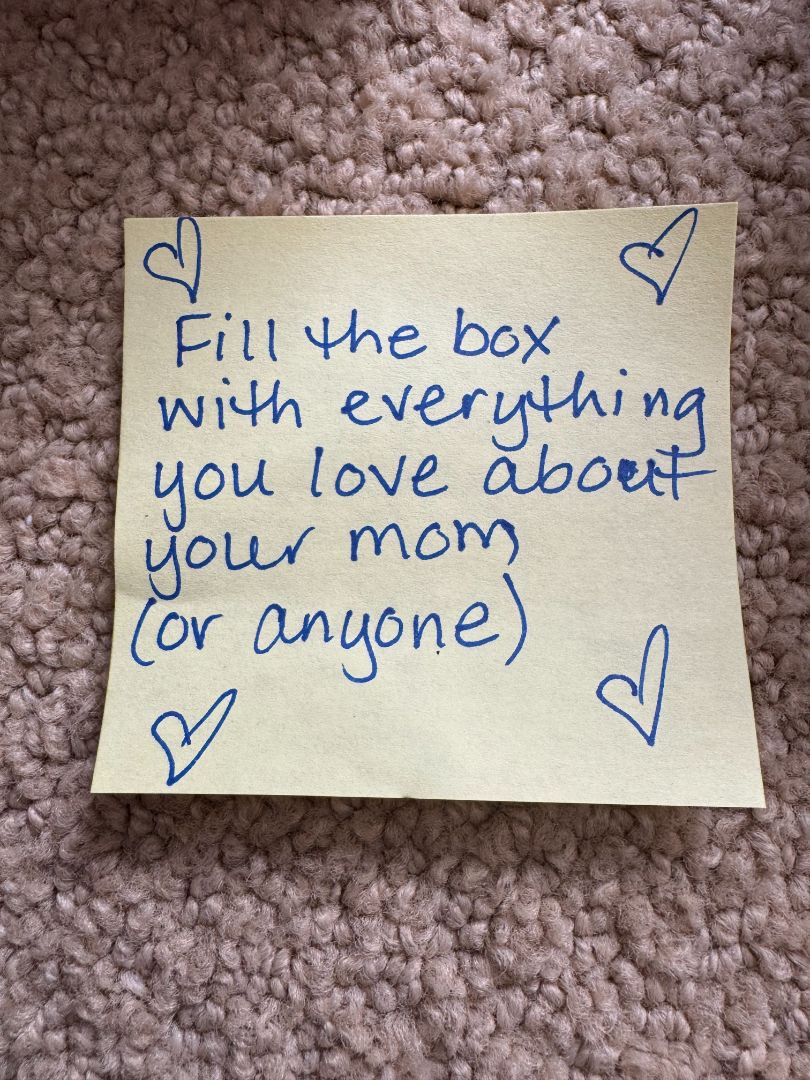 Fill the box
with everything
you love about
your mom
(or anyone)